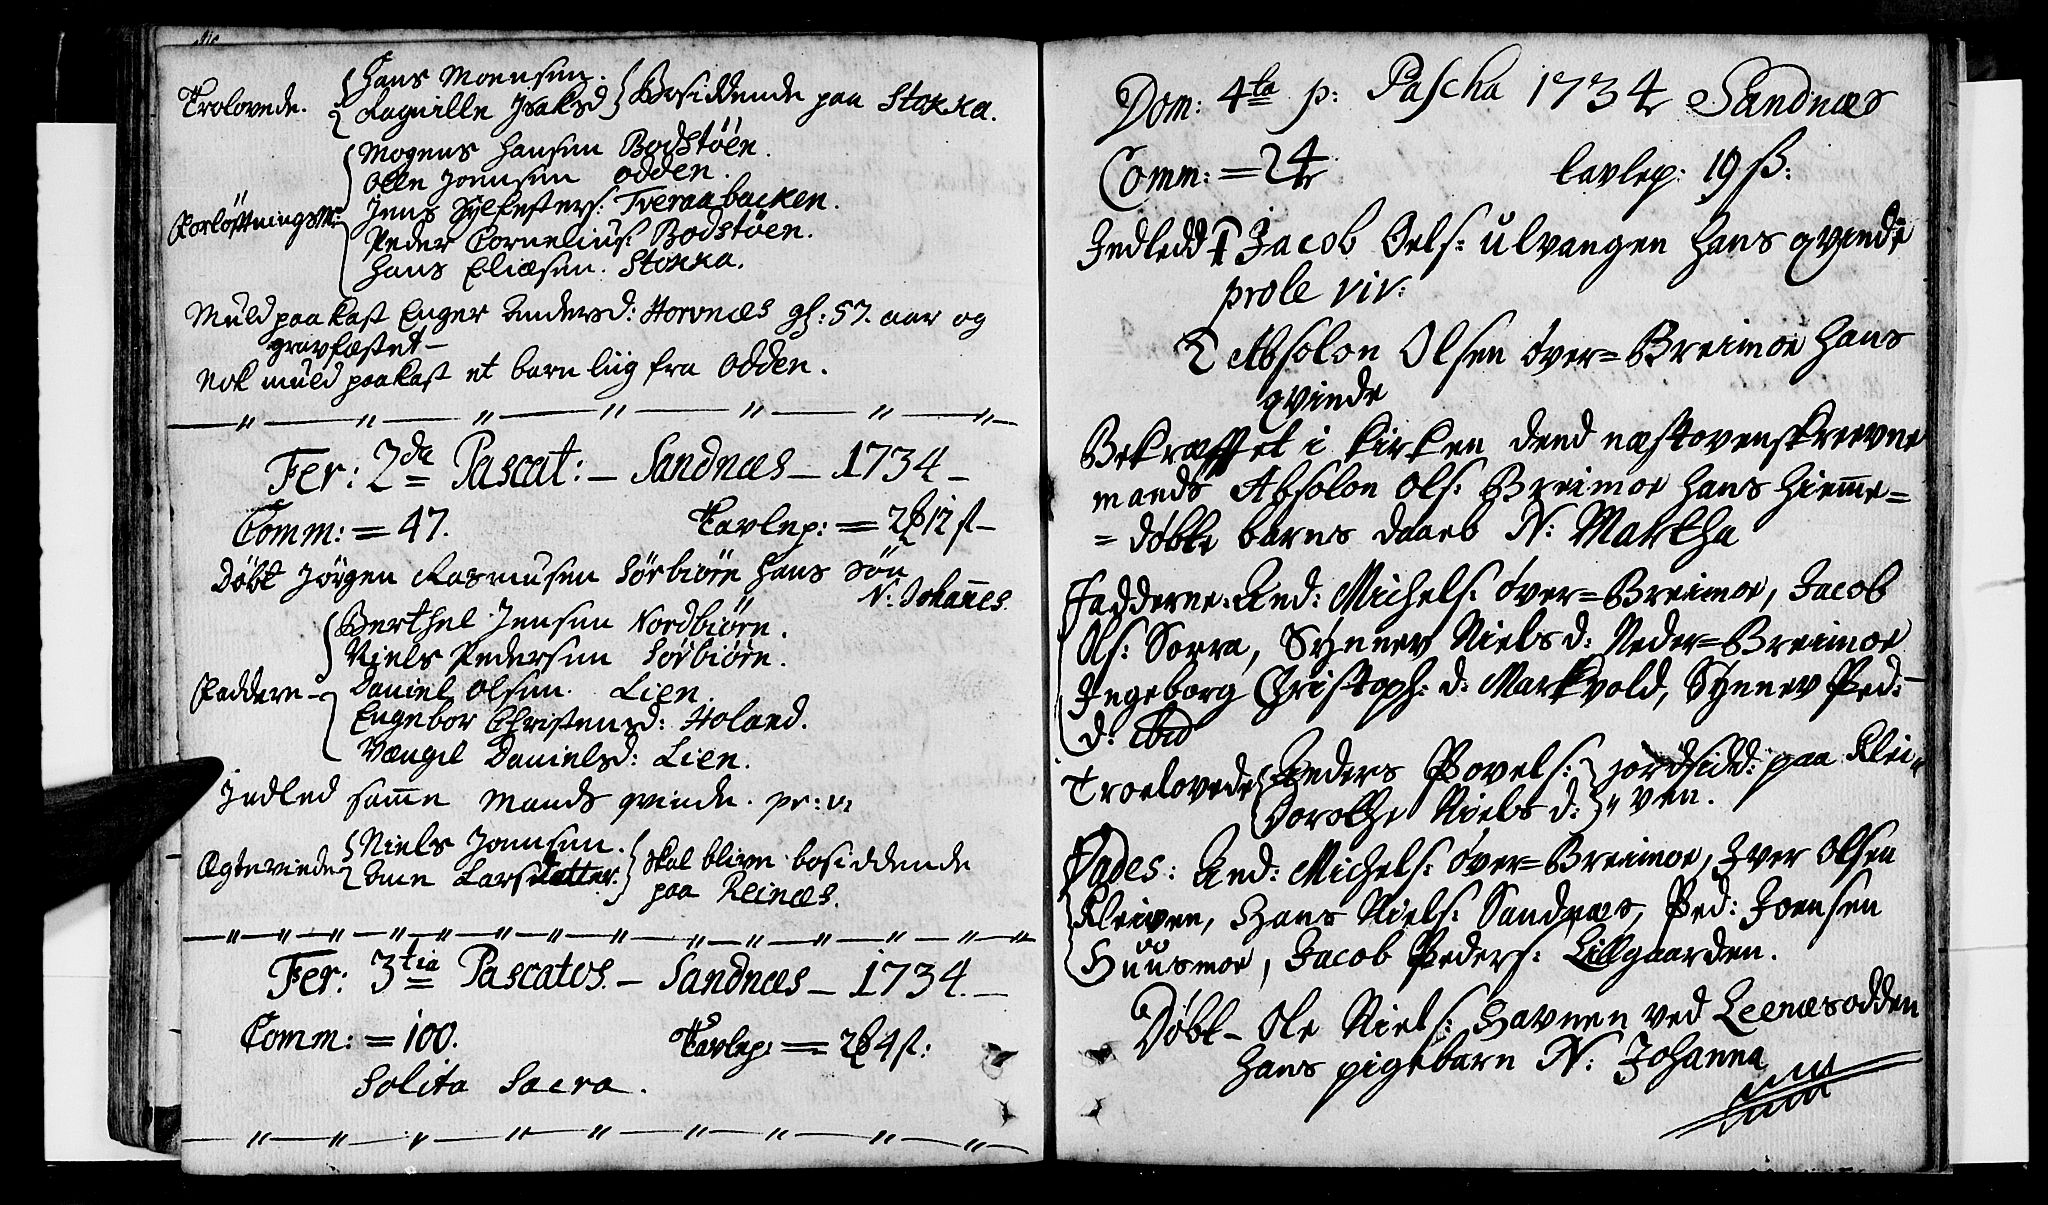 Trolovede. { Hans Monsen. } Bosiddende paa Stokka.
Ragnille Isaksd
Mogens Hansen Bodstöen.
Olle Jonnsen Odden.
Forlöftningsm: Jens Sylfesters: Tveraabacken.
Peder Cornelius: Bodstöen.
Hans Eliæsen. Stokka.
Muld paakast Enger Andersd: Horvnæs gl: 57. aar og
gravfæstet -
Nok muld paakast et barn liig fra Odden.
Fer: 2da Pascat: - Sandnæs - 1734 -
Comm: = 47. Tavlep: = 2 12 ß -
Döbt Jörgen Rasmusen Sörbiörn hans sön
N: Johannes.
Berthel Jensen Nordbiörn.
Niels Pedersen Sörbiörn.
Faddere - Daniel Olsen. Lien.
Engebor Christensd: Holand.
Vængel Danielsd: Lien.
Indled samme Mands qvinde. pr: v:
Ægteviede { Niels Jonnsen. } skal blive bosiddende
Ane Larsdatter. paa Reinæs.
Fer: 3tia Pascatos. - Sandnæs - 1734. -
Comm: = 100. Tavlep: = 2 4 ß:
Solita Sacra.
Dom: 4ta p: Pascha 1734 Sandnæs
Comm: = 24 tavlep: 19 ß:
Indledd 1 Jacob Oels: Ulvangen hans qvinde
prole viv:
2 Absolon Olsen över=Breimoe hans
qvinde
Bekræfftet i kirken dend næstovenskrevne
mands Absolon Ols: Breimoe hans hiemme=
=döbte barns daab N: Martha
Fadderne: And: Michels: över=Breimoe, Jacob
Ols: Sorra, Synnev Nielsd: Neder=Breimoe
Ingeborg Christoph: d: Markvold, Synnev Ped:
d: ibid
Troelovede { Anders Povels: } jordsidd: paa Klei-
Dorothe Nielsd: ven.
Vades: And: Michels: över=Breimoe, Iver Olsen
Kleiven, Hans Niels: Sandnæs, Ped: Joensen
Huusmoe, Jacob Peders: Lillgaarden.
Döbt - Ole Niels: Havnen ved Leenæsodden
hans pigebarn N: Johanna